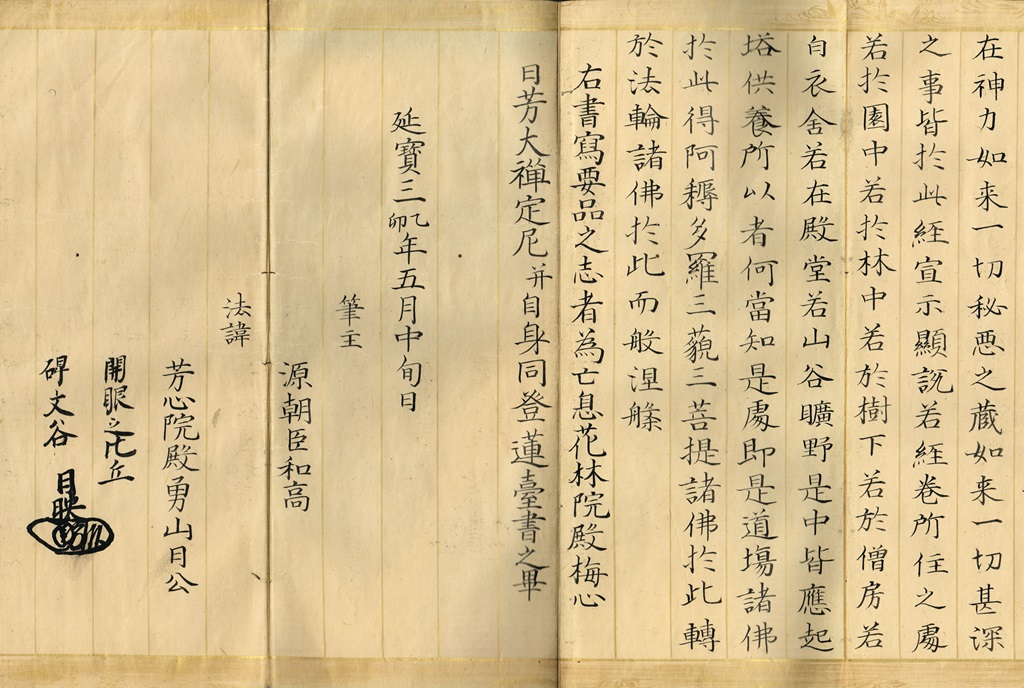 在神力如来一切秘悪之蔵如来一切甚深
之事皆於此経宣示顯説若経巻所住之處
若於園中若於林中若於樹下若於僧房若
白衣舎若在殿堂若山谷曠野是中皆應起
塔供養所以者何當知是處即是道場諸佛
於此得阿耨多羅三藐三菩提諸佛於此轉
於法輪諸佛於此而般涅槃
右書寫要品之志者為亡息花林院殿梅心
日芳大禪定尼并自身同登蓮臺書之畢
延寶三乙卯年五月中旬日
筆主
源朝臣和高
法諱
芳心院殿勇山日公
開眼之比丘
碑文谷 日